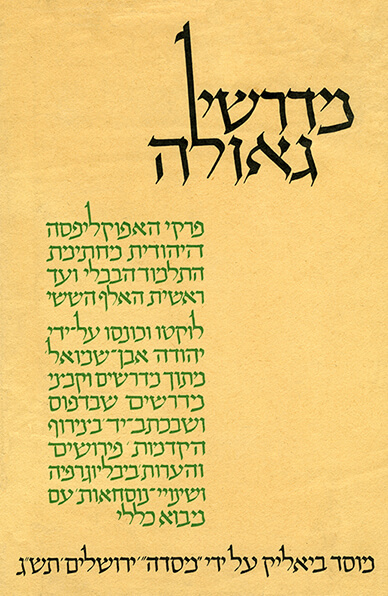 מדרשי
גאולה
פרקי האפוקליפסה
היהודית מחתימת
התלמוד הבבלי ועד
ראשית האלף הששי
לוקטו וכונסו על־ידי
יהודה אבן־שמואל
מתוך מדרשים וקבצי
מדרשים שבדפוס
ושבכתב־יד בצירוף
הקדמות, פירושים
והערות ביבליוגרפיה
ושינויי־נוסחאות עם
מבוא כללי
מוסד ביאליק על ידי "מסדה", ירושלים, תש״ג